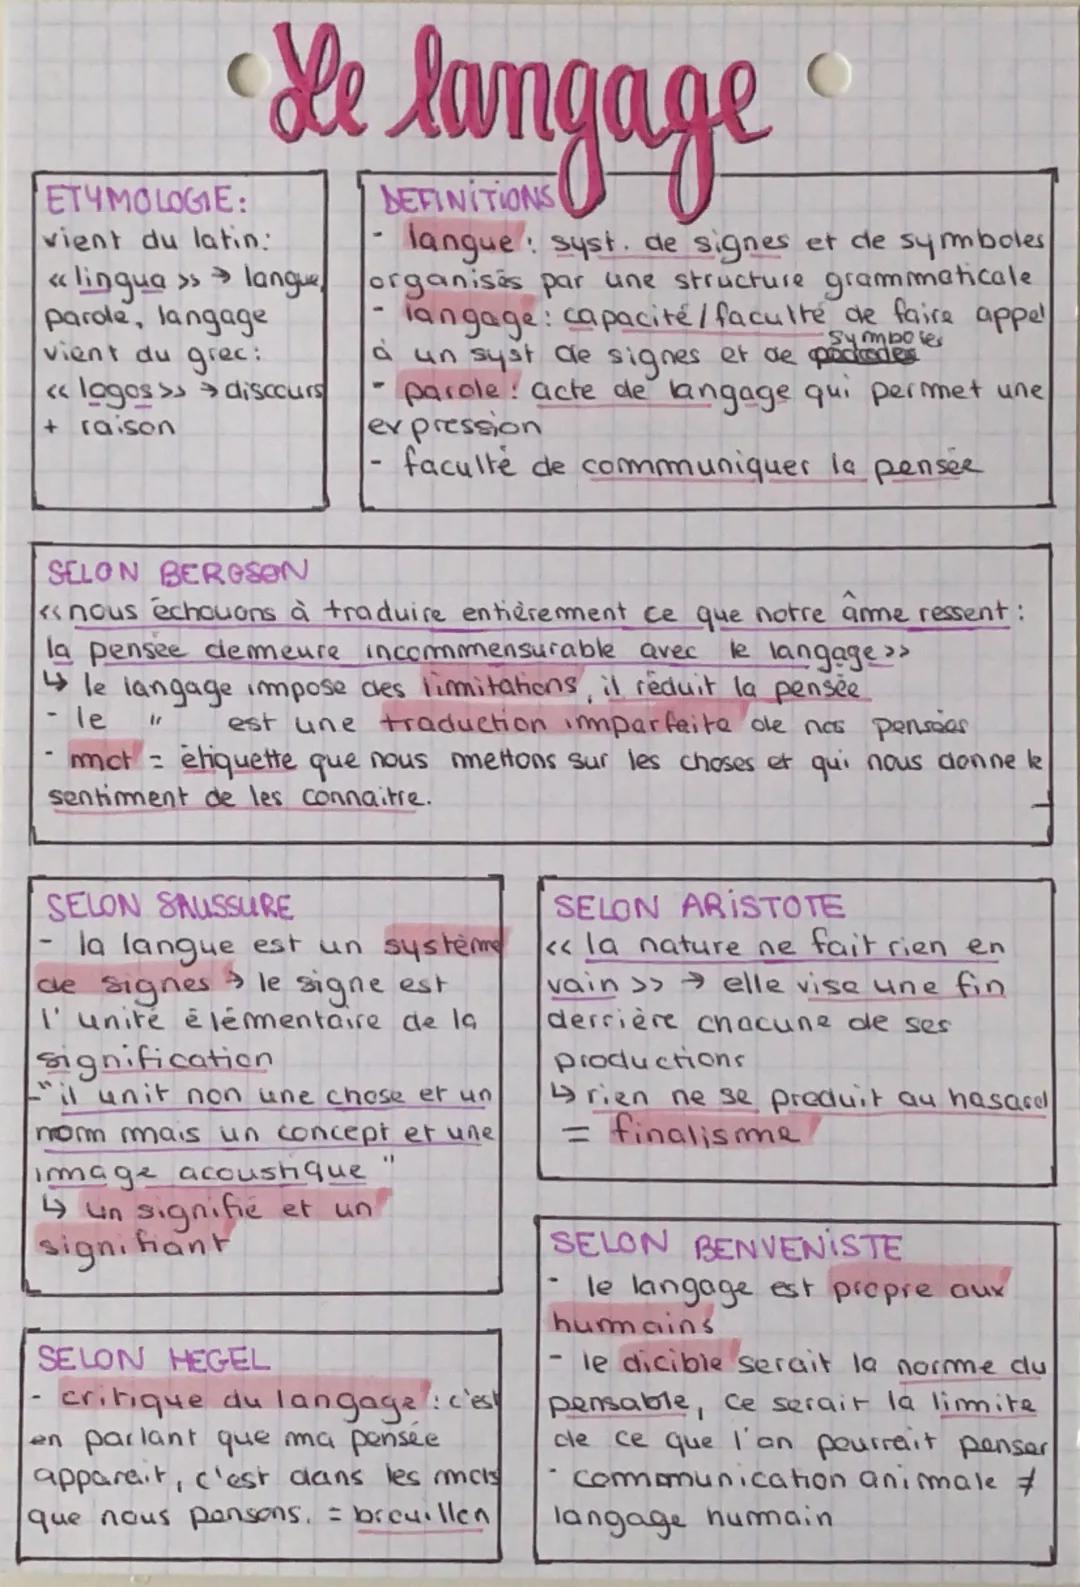 Le langage
ETYMOLOGIE:
vient du latin:
« lingua » → langue,
parole, langage
vient du grec:
« logos » → discours
+ raison
DEFINITIONS
- langue : syst. de signes et de symboles
organisés par une structure grammaticale
- langage : capacité/faculté de faire appel
symboles
à un syst de signes et de
- parole : acte de langage qui permet une
expression
- faculté de communiquer la pensée
SELON BERGSON
« nous échouons à traduire entièrement ce que notre âme ressent :
la pensée demeure incommensurable avec le langage »
↳ le langage impose des limitations, il réduit la pensée
- le " est une traduction imparfaite de nos pensées
- mot = étiquette que nous mettons sur les choses et qui nous donne le
sentiment de les connaitre.
SELON SAUSSURE
- la langue est un système
de signes → le signe est
l'unité élémentaire de la
signification
-"il unit non une chose et un
nom mais un concept et une
image acoustique "
↳ un signifié et un
signifiant
SELON HEGEL
- critique du langage : c'est
en parlant que ma pensée
apparait, c'est dans les mots
que nous pensons. = brouillon
SELON ARISTOTE
« la nature ne fait rien en
vain » → elle vise une fin
derrière chacune de ses
productions
↳ rien ne se produit au hasard
= finalisme
SELON BENVENISTE
- le langage est propre aux
humains
- le dicible serait la norme du
pensable, ce serait la limite
de ce que l'on pourrait penser
- communication animale ≠
langage humain